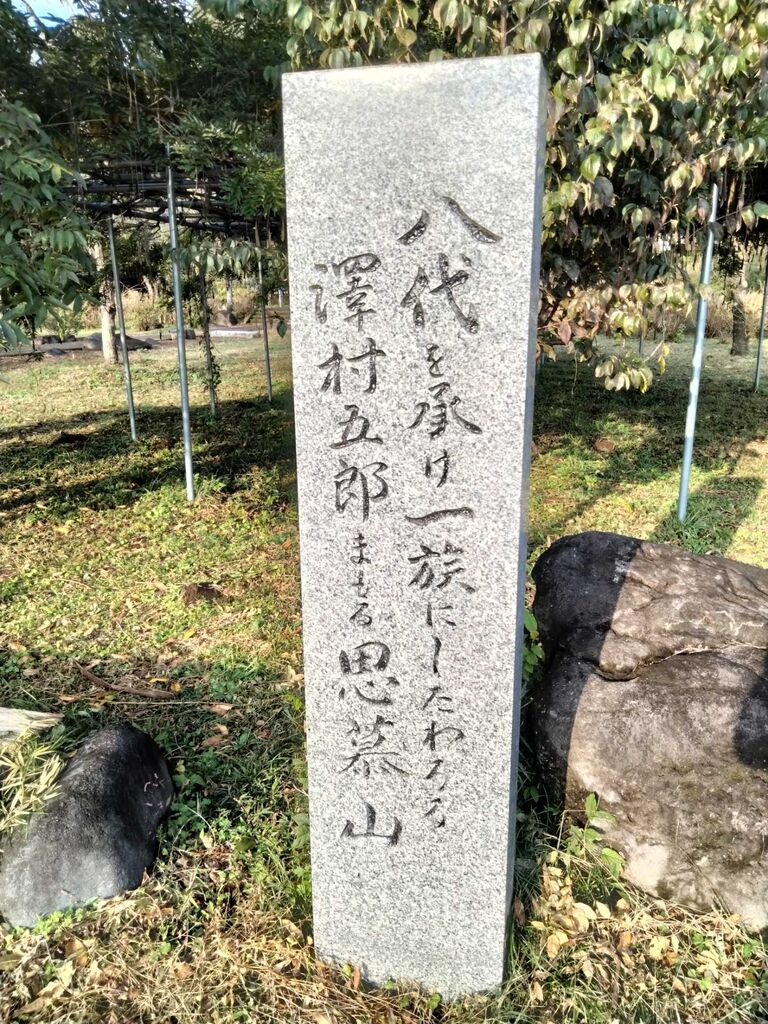 八代を承け一族にしたわるる
澤村五郎まもる思慕山